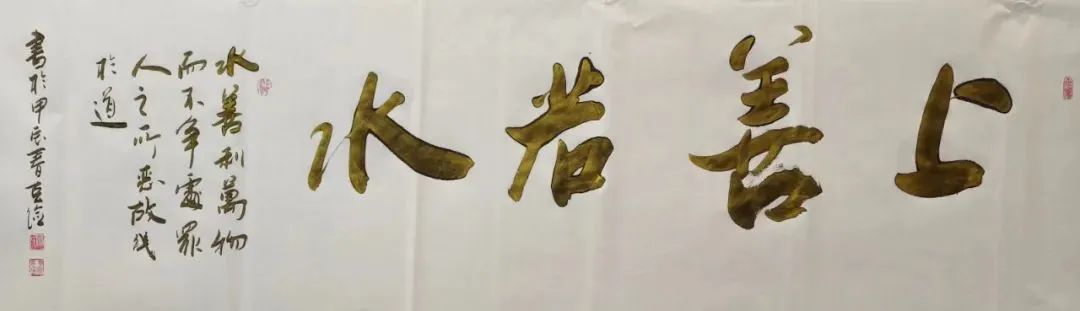 上善若水
水善利萬物
而不争處眾
人之所惡故幾
於道
書於甲辰春